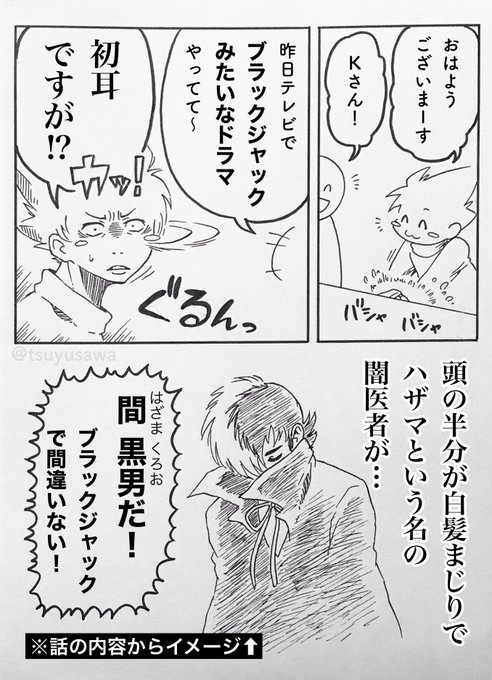 おはよう
ございまーす
Kさん!
バシャ
バシャ
昨日テレビで
ブラックジャック
みたいなドラマ
やってて〜
初耳
ですが!?
カッ!
ぐるんっ
@tsuyusawa
頭の半分が白髪まじりで
ハザマという名の
闇医者が…
はざま くろお
間 黒男だ!
ブラックジャック
で間違いない!
※話の内容からイメージ⬆